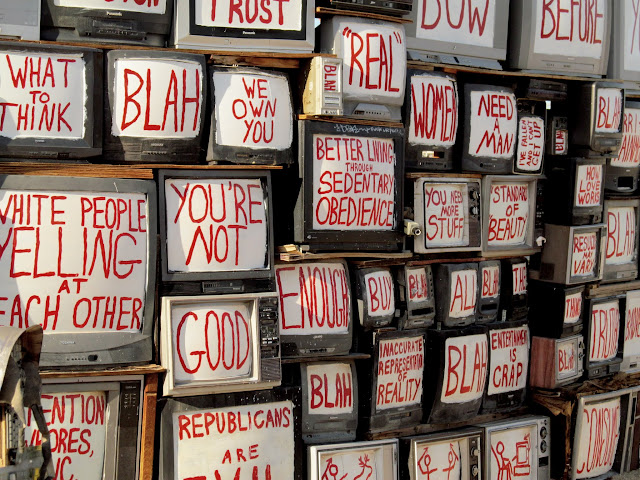 TRUST
BOW
BEFORE
WHAT
TO
THINK
BLAH
WE
OWN
YOU
BL
"REAL"
WOMEN
NEED
A MAN
BLAH
BETTER LIVING
THROUGH
SEDENTARY
OBEDIENCE
WHITE PEOPLE
YELLING
AT
EACH OTHER
YOU'RE
NOT
YOU NEED
MORE
STUFF
STANDARD
OF
BEAUTY
HOW
LOVE
WORKS
BLAH
RESULTS
MAY
VARY
GOOD
ENOUGH
BUY
BLAH
ALL
BLAH
THE
THAN
TRUTH
BLAH
INACCURATE
REPRESENTATION
OF
REALITY
BLAH
ENTERTAINMENT
IS
CRAP
BLAH
REPUBLICANS
ARE
CONSUME